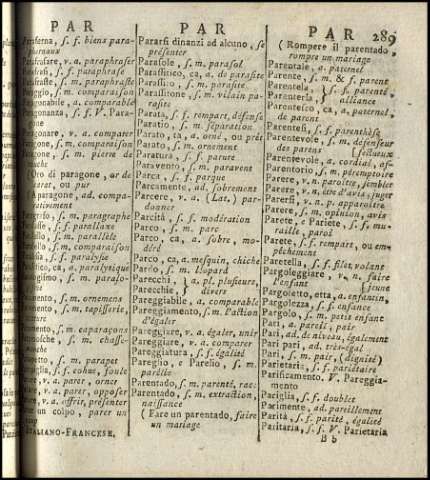 PAR PAR PAR 289
s. f. biens para-
phernaux
v. a. paraphraser
s. f. paraphrase
s. m. paraphraste
s. m. comparaison
a. comparable
s. f. V. Para-
v. a. comparer
s. m. comparaison
s. m. pierre de
touche
(Oro di paragone, or de
carat, ou pur
A paragone, ad. compa-
rativement
s. m. paragraphe
s. f. pantillane
s. m. parallèle
s. m. comparaison
s. f. paralysie
ca, a. paralytique
s. m. paralo-
s. m. ornemens
s. m. tapisserie,
s. m. caparaçons
s. m. chasse-
mouche
s. m. parapet
s. f. cohue, foule
v. a. parer, orner
v. a. parer, opposer
v. a. offrir, présenter
un colpo, parer un
coup
ITALIANO-FRANCESE,
Pararsi dinanzi ad alcuno, se
présenter
Parasole, s. m. parasol
Parassitico, ca, a. de parasite
Parassito, s. m. parasite
Parassitone, s. m. vilain pa-
rasite
Parata, s. f. rempart, défense
Paratio, s. m. séparation
Parato, ta, a. orné, ou prêt
Parato, s. m. ornement
Paratura, s. f. parure
Paravento, s. m. paravent
Parca, s. f. parque
Parcamente, ad. sobrement
Parcere, v. a. (Lat.) par-
donner
Parcità, s. f. modération
Parco, s. m. parc
Parco, ca, a. sobre, mo-
déré
Parco, ca, a. mesquin, chiche
Pardo, s. m. léopard
Parecchi, } a. pl. plusieurs,
Parecchie, } divers
Pareggiabile, a. comparable
Pareggiamento, s. m. l'action
d'égaler
Pareggiare, v. a. égaler, unir
Pareggiare, v. a. comparer
Pareggiatura, s. f. égalité
Pareglio, e Parelio, s. m.
parélie
Parentado, s. m. parenté, race
Parentado, s. m. extraction,
naissance
(Fare un parentado, faire
un mariage
(Rompere il parentado,
rompre un mariage
Parentale, a. paternel
Parente, s. m. & f. parent
Parentela, } s. f. parenté,
Parenteria, } alliance
Parentesco, ca, a. paternel,
de parent
Parentesi, s. f. parenthèse
Parentevole, s. m. défenseur
des parens [fectueux
Parentevole, a. cordial, af-
Parentorio, s. m. péremptoire
Parere, v. n. paroître, sembler
Parere, v. n. être d'avis, juger
Parersi, v. n. p. apparoître
Parere, s. m. opinion, avis
Parete, e Pariete, s. f. mu-
raille, paroi
Parete, s. f. rempart, ou em-
pêchement
Paretella, s. f. filet volant
Pargoleggiare, v. n. faire
l'enfant [jeune
Pargoletto, etta, a. enfantin,
Pargolezza, s. f. enfance
Pargolo, s. m. petit enfant
Pari, a. pareil, pair
Pari, ad. de niveau, également
Pari pari, ad. très-égal
Pari, s. m. pair, (dignité)
Parietaria, s. f. pariétaire
Parificamento, V. Pareggia-
mento
Pariglia, s. f. doublet
Parimente, ad. pareillement
Parità, s. f. parité, égalité
Paritaria, s. f. V. Parietaria
B b